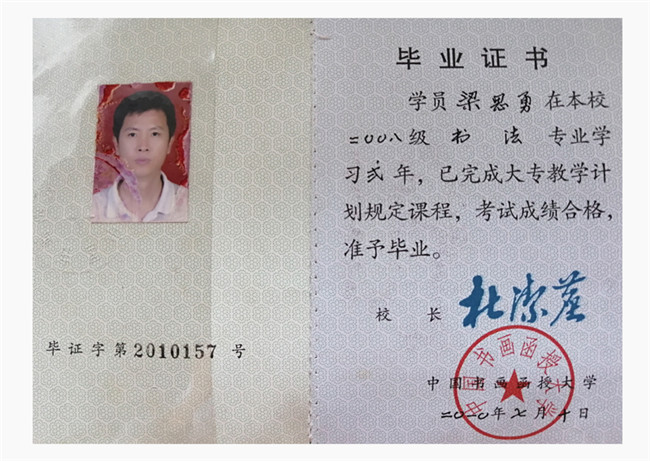 毕证字第2010157号
毕业证书
学员梁思勇在本校
二〇〇八级 书 法 专业学
习贰年，已完成大专教学计
划规定课程，考试成绩合格，
准予毕业。
校 长
中国书画函授大学
中国书画函授大学
二〇一〇年七月十日